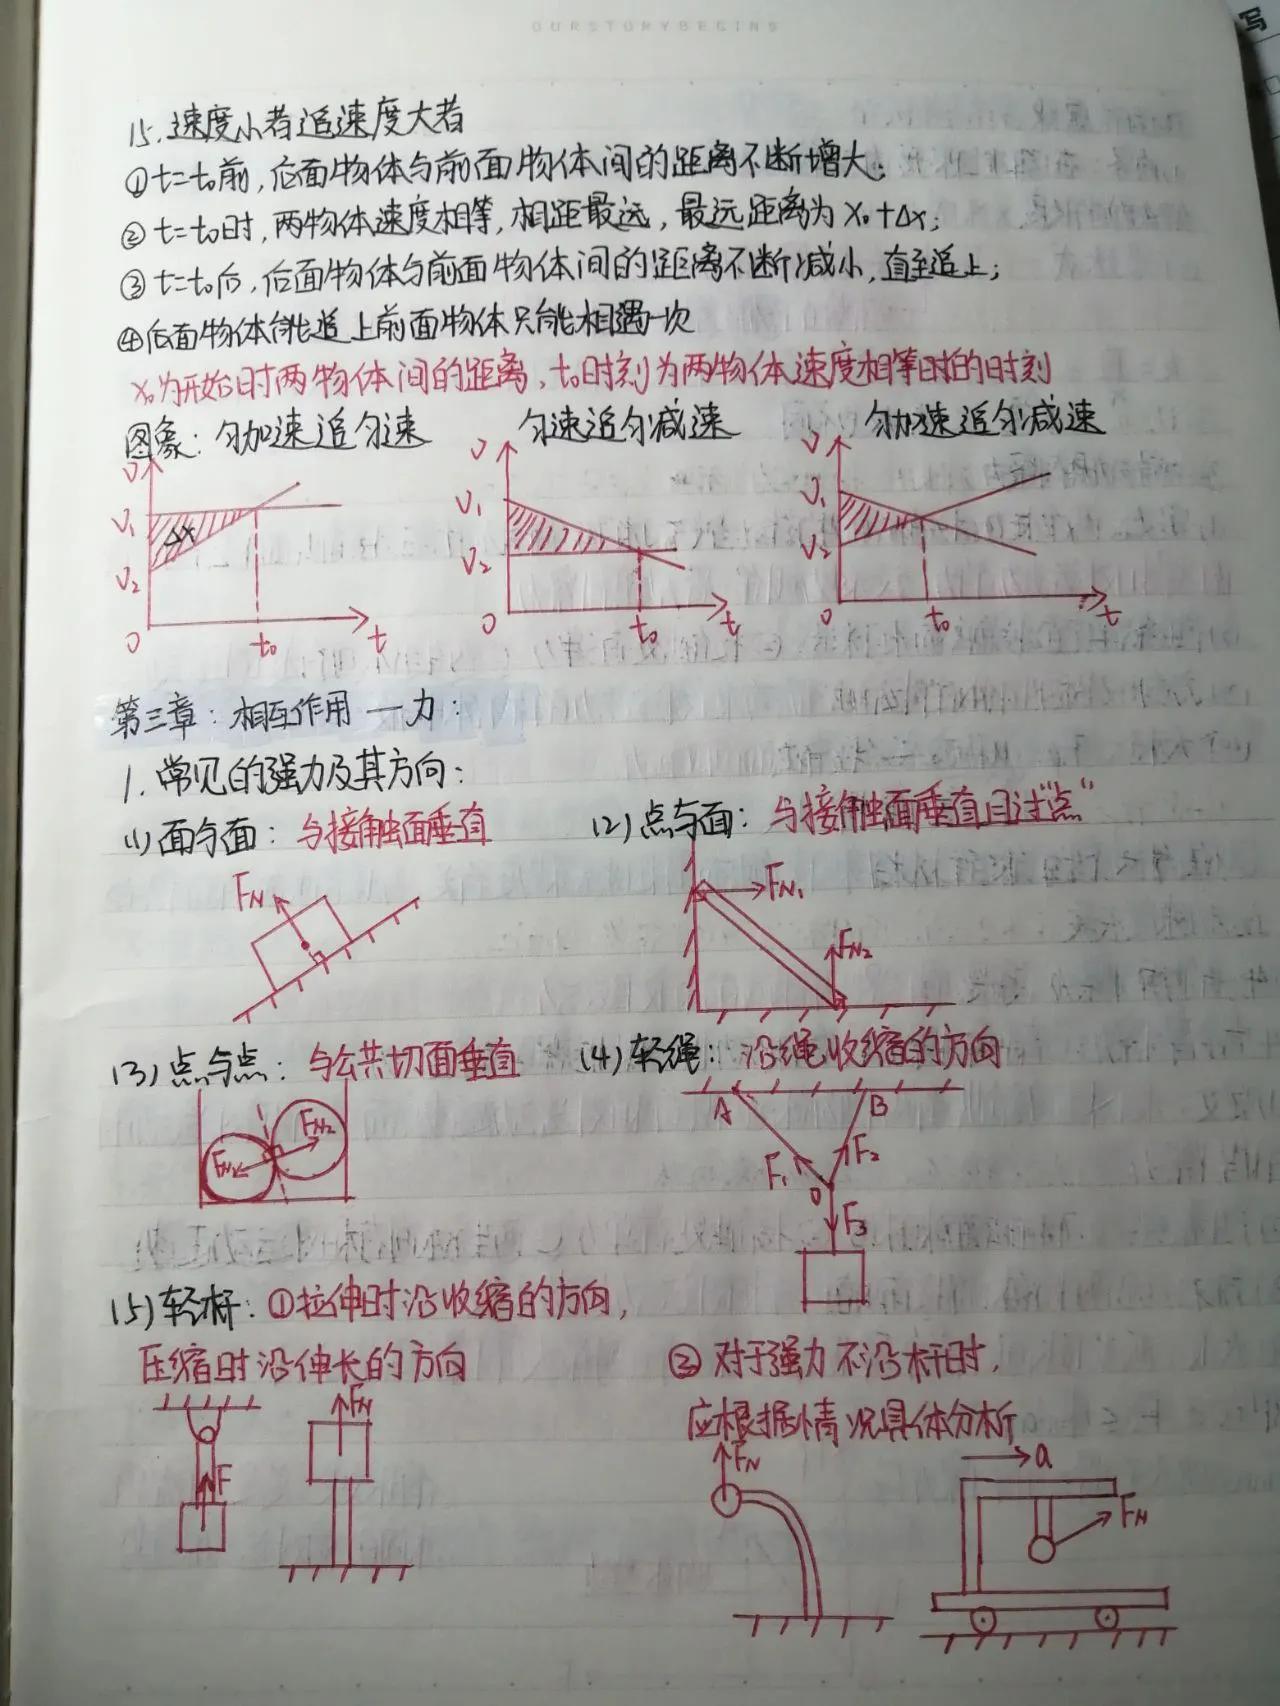 OURSTORYBEGINS
写
15. 速度小者追速度大者
①t=t₀前,后面物体与前面物体间的距离不断增大;
②t=t₀时,两物体速度相等,相距最远,最远距离为x₀+Δx;
③t=t₀后,后面物体与前面物体间的距离不断减小,直至追上;
④后面物体能追上前面物体只能相遇一次
x₀为开始时两物体间的距离,t₀时刻为两物体速度相等时的时刻
图象: 匀加速追匀速 匀速追匀减速 匀加速追匀减速
v v v
V₁ V₁ V₁
Δx
V₂ V₂ V₂
0 t₀ t 0 t₀ t 0 t₀ t
第三章: 相互作用—力:
1. 常见的强力及其方向:
(1) 面与面: 与接触面垂直 (2) 点与面: 与接触面垂直且过"点"
FN FN₁
FN₂
(3) 点与点: 与公共切面垂直 (4) 轻绳: 沿绳收缩的方向
A B
FN₁ FN₂
F₁ F₂
O
F₃
(5) 轻杆: ①拉伸时沿收缩的方向,
压缩时沿伸长的方向 ② 对于强力不沿杆时,
应根据情况具体分析
FN
F FN a FN